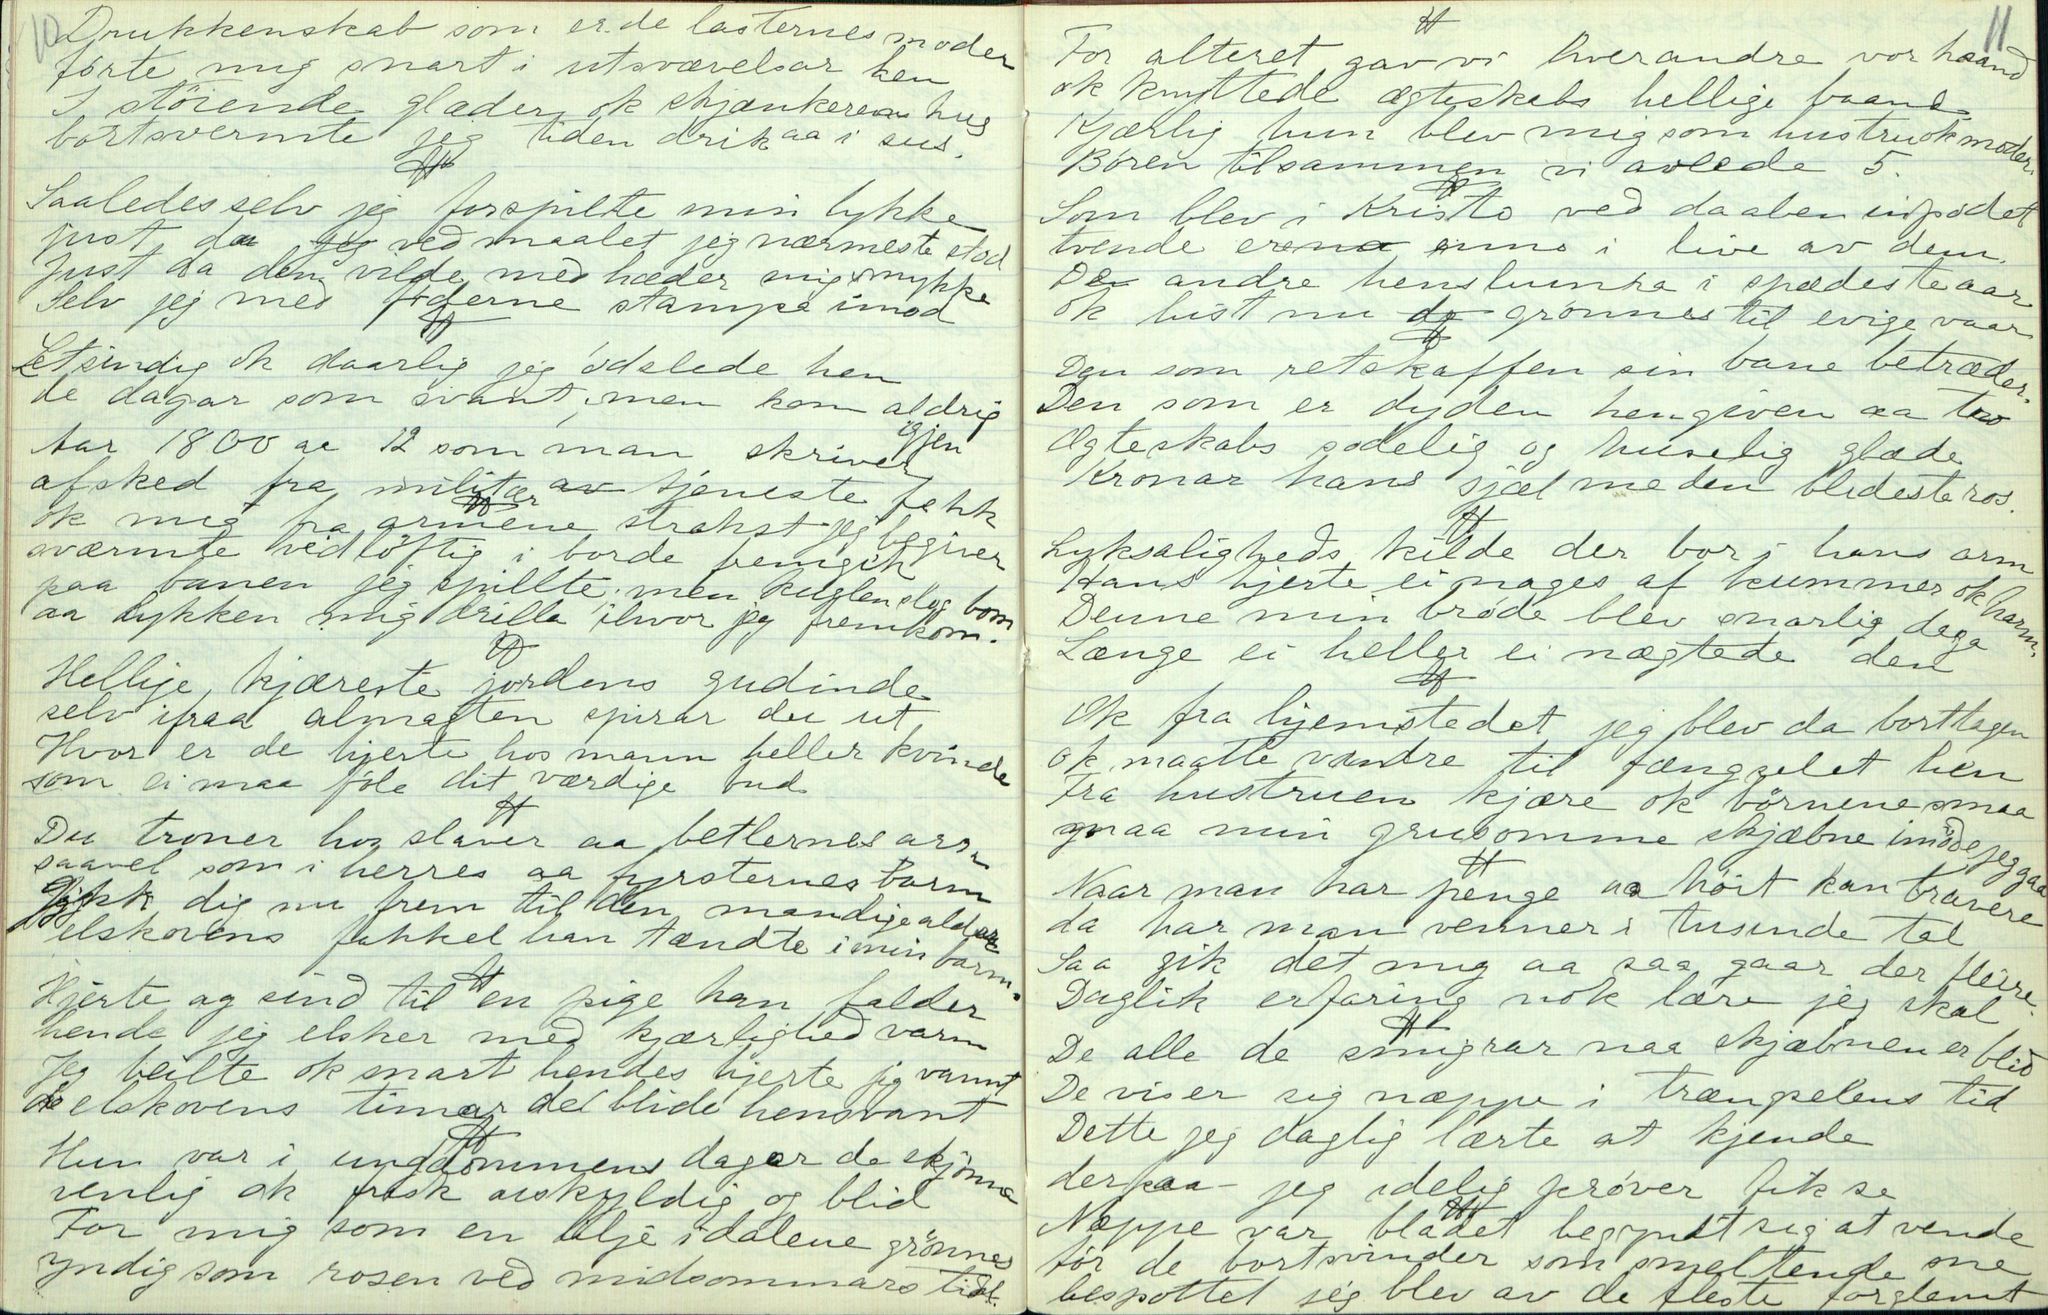 10
Drukkenskab som er de lasternes moder
førte mig snart i utsværelsar hen
I støiende glæder ok skjænkerens hus
bortsvermte jeg tiden drik aa i sus.
#
Saaledes selv jeg forspilte min lykke
just da jeg ved maalet jeg nærmeste stod
Just da den vilde med hæder mig smykke
Selv jeg med føderne stampe imod
#
Letsindig ok daarlig jeg ødslede hen
de dagar som svant, men kom aldrig igjen
Aar 1800 aa 12 som man skriver
afsked fra militær av tjeneste fekk
#
ok mig fra armene strakst jeg begiver
sværmte vidløftig i borde fremgik
paa banen jeg spillte, men kuglen slog bom
aa lykken mig drilla ihvor jeg fremkom.
#
Hellige, kjæreste jordens gudinde
selv ifraa almagten spirar du ut
Hvor er de hjerte hos mann heller kvinde
som ei maa føle dit værdige bud
#
Du troner hos slaver aa betlernes arm
saavel som i herres aa fyrsternes barm
Gikk dig nu frem til den mandige alder
elskovens fakkel han tændte i min barm.
#
Hjerte og sind til en pige han falder
hende jeg elsker med kjærlighed varm
Jeg beilte ok snart hendes hjerte jeg vannt
de elskovens timar de blide hensvant
#
Hun var i ungdommens dagar de skjønna
venlig ok frask uskyldig og blid
For mig som en lilje i dalene grønnes
yndig som rosen ved midsommars tid.
11
#
For alteret gav vi hverandre vor haand
ok knyttede ægteskabs hellige baand
Kjærlig hun blev mig som hustru ok moder.
Børen tilsammen vi avlede 5.
#
Som blev i Kristo ved daaben inpodet
tvende er enno i live av dem.
De andre henslumra i spædeste aar
ok hist nu de grønnes til evige vaar
#
Den som retskaffen sin bane betræder.
Den som er dyden hengiven aa tro
Ægteskabs sødelig og huselig glæde
Kronar hans sjæl me den blideste ros.
#
Lyksaligheds kilde der bor i hans arm
Hans hjerte ei nages af kummer ok harm.
Denne min brøde blev snarlig dega
Længe ei heller ei nægtede den
#
Ok fra hjemstedet jeg blev da borttagen
ok maatte vandre til fængselet hen
Fra hustruen kjære ok børnene smaa
maa min grusomme skjæbne imøde jeg gaa
#
Naar man har penge aa høit kan bravere
da har man venner i tusinde tal
Saa gik det mig aa saa gaar der fleire.
Daglik erfaring nok lære jeg skal
#
De alle de smigrar naa skjæbnen er blid
De viser sig næppe i trængselens tid
Dette jeg daglig lærte at kjende
derpaa jeg idelig prøver fik se
#
Næppe var bladet begyndt sig at vende
før de bortsvinder som smeltende sne
bespottet jeg blev av de fleste forglemt